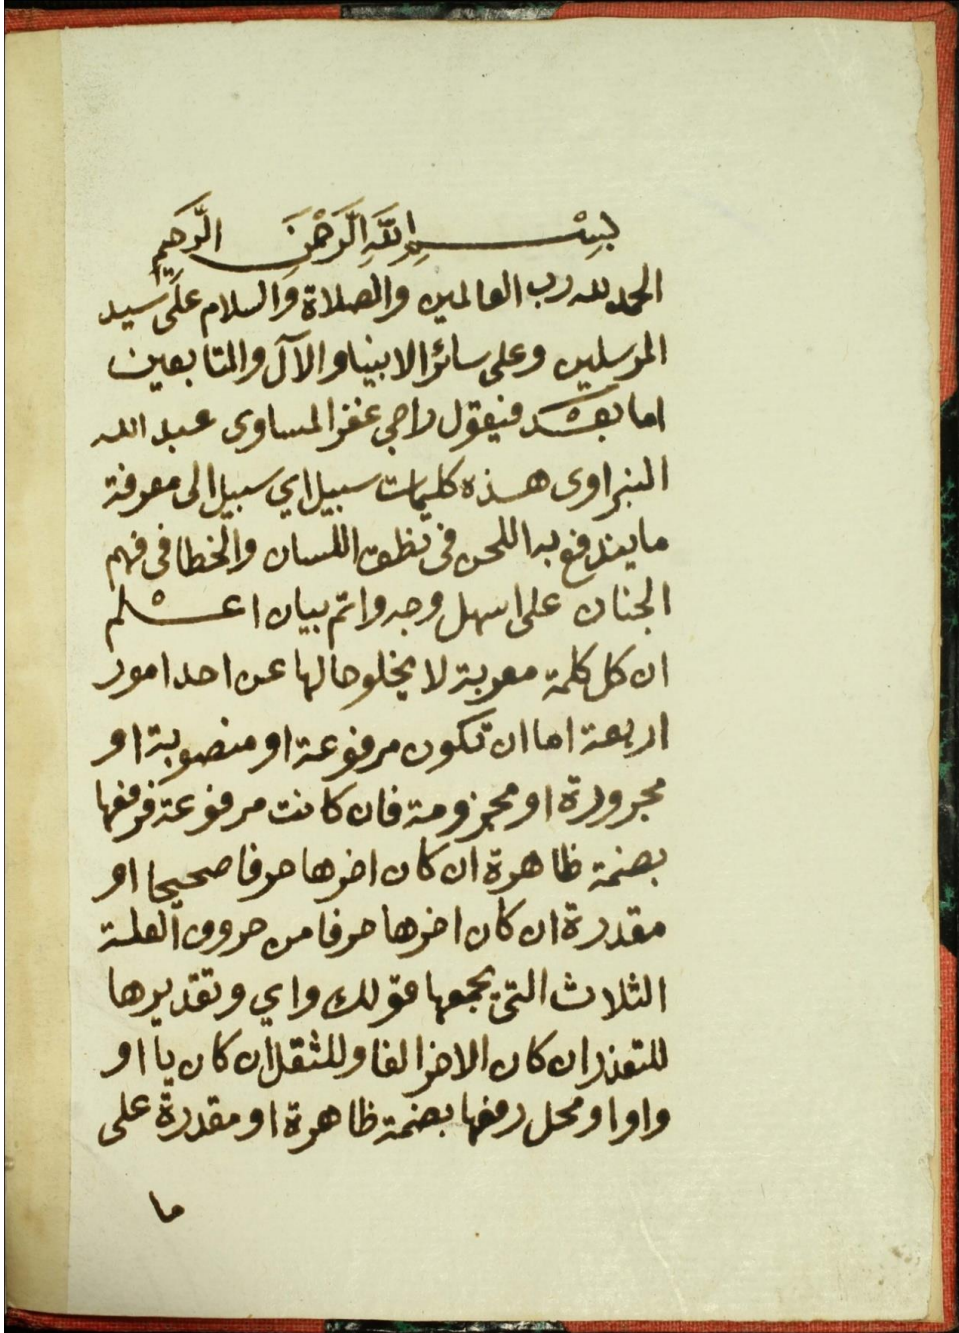 بِسْمِ اللَّهِ الرَّحْمَنِ الرَّحِيمِ
الحمد لله رب العالمين والصلاة والسلام على سيد
المرسلين وعلى سائر الانبيا والآل والتابعين
اما بعد فيقول راجي غفر المساوى عبد الله
النبراوى هذه كليمات سبيل اي سبيل الى معرفة
ما يندفع به اللحن فى نطق اللسان والخطا فى فهم
الجنان على اسهل وجه واتم بيان اعلم
ان كل كلمة معربة لا يخلو حالها عن احد امور
اربعة اما ان تكون مرفوعة او منصوبة او
مجرورة او مجزومة فان كانت مرفوعة فرفعها
بضمة ظاهرة ان كان اخرها حرفا صحيحا او
مقدرة ان كان اخرها حرفا من حروف العلة
الثلاث التى يجمعها قولك واي وتقديرها
للتعذر ان كان الاخر الفا وللثقل ان كان يا او
واوا ومحل رفعها بضمة ظاهرة او مقدرة على
ما